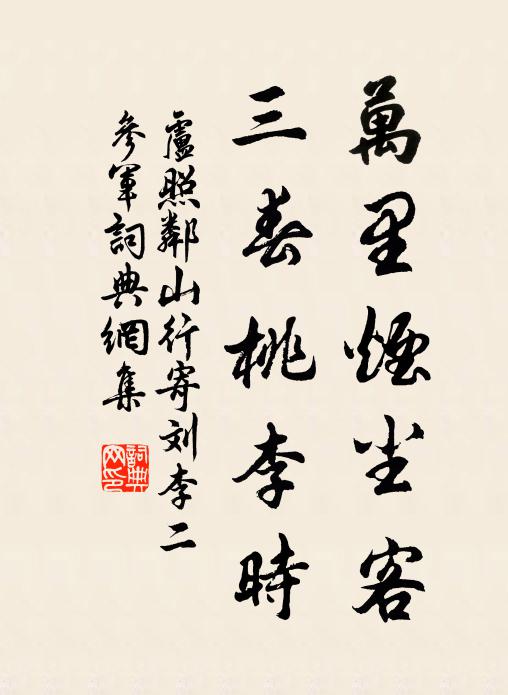 萬里煙尘客
三春桃李時
盧照鄰山行寄刘李二
參軍詞典網集
詞典
网印